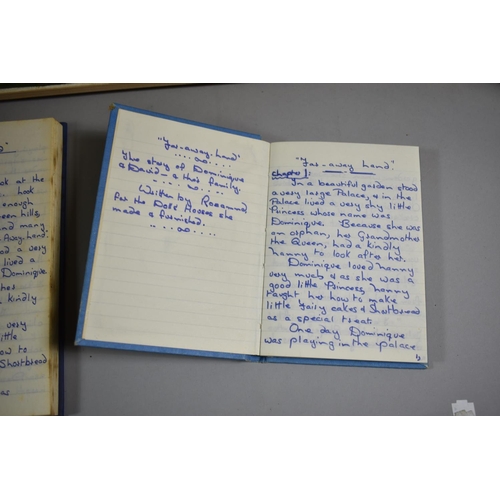 d"
ok at the
. Look
enough
een hills,
and many.
Away Land.
d a very
lived a
Dominique.
her
kindly
very
little
ow to
Shortbread
as
"Far-away-hand"
The story of Dominique
& David - & their family.
Written by Roseanna
for the Doll House she
made & furnished.
"Far-away hand".
Chapter 1:
In a beautiful garden stood
a very large Palace, & in the
Palace lived a very shy little
Princess whose name was
Dominique. Because she was
an orphan, her Grandmother
the Queen, had a kindly
nanny to look after her.
Dominique loved nanny
very much, & as she was a
good little Princess, nanny
taught her how to make
little fairy cakes & Shortbread
as a special treat.
One day Dominique
was playing in the palace